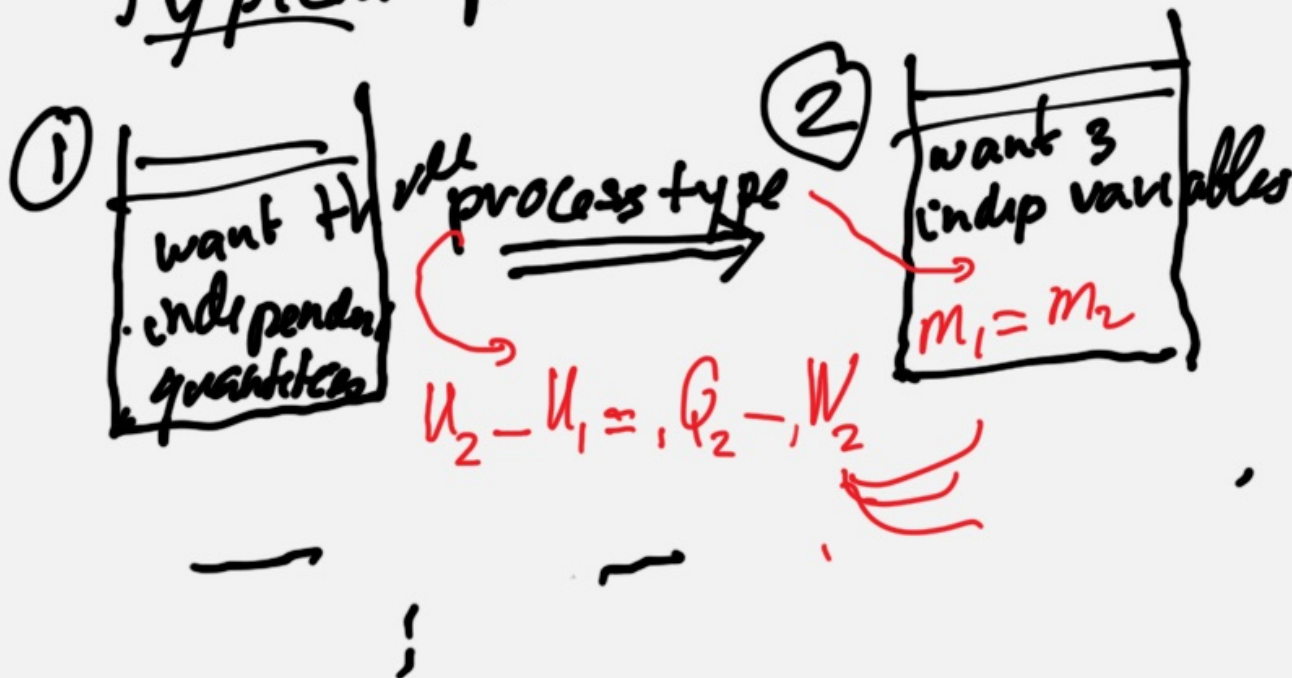 Typical
① want three independent quantities
process type
② want 3 indep variables
m₁ = m₂
U₂ – U₁ = ₁Q₂ – ₁W₂